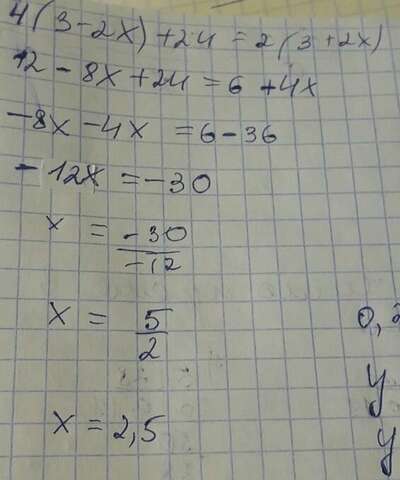 4(3-2x)+24=2(3+2x)
12-8x+24=6+4x
-8x-4x=6-36
-12x=-30
x = -30/-12
x = 5/2
0,
x = 2,5
y
y